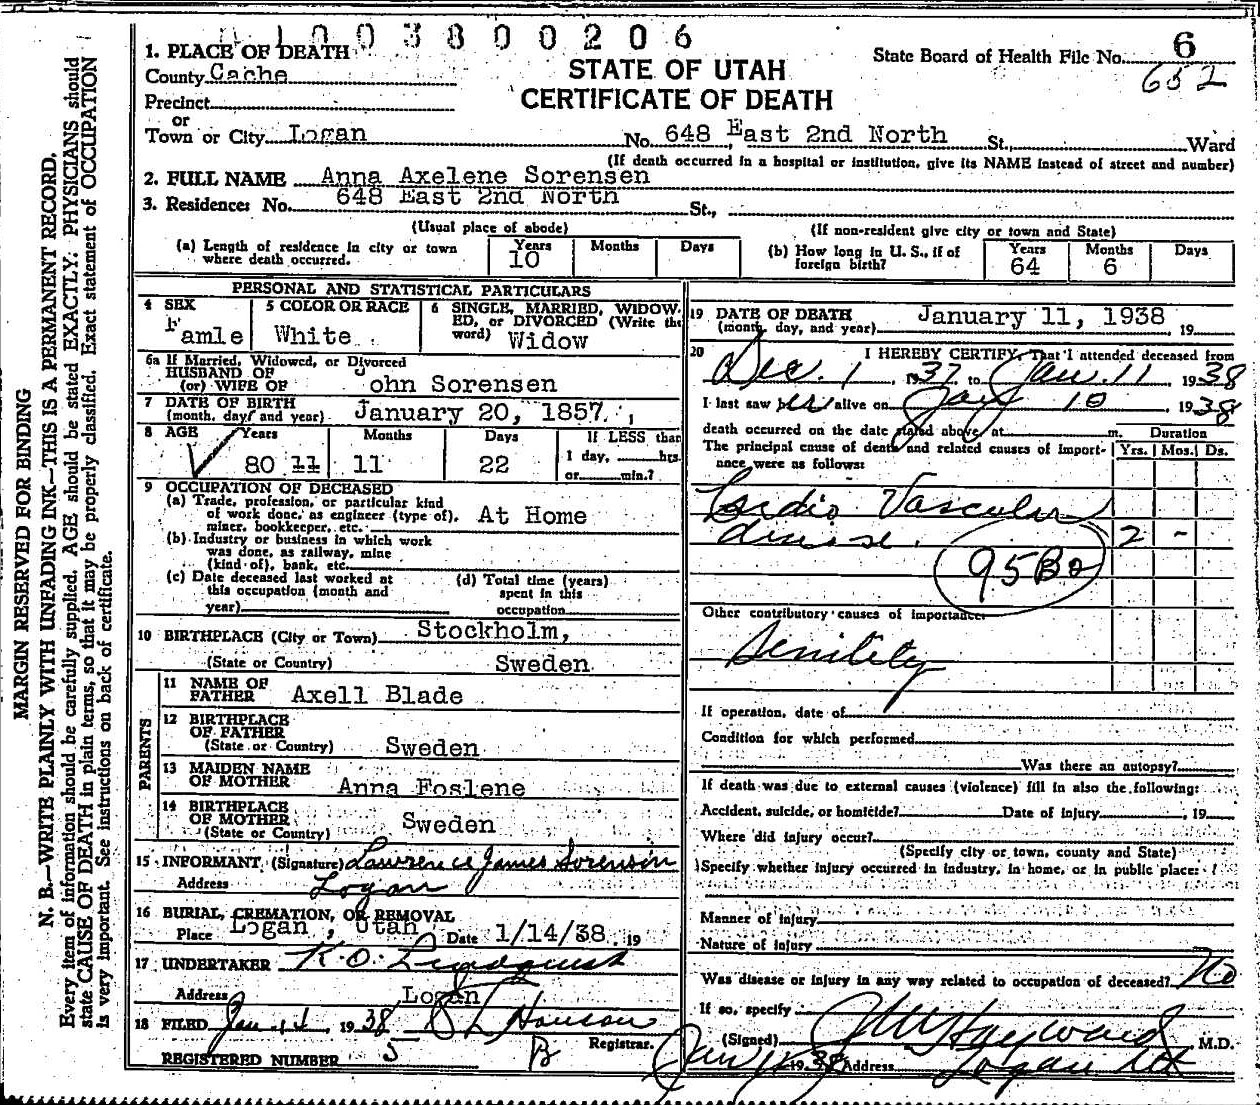 1003800206
1. PLACE OF DEATH
County Cache
STATE OF UTAH
CERTIFICATE OF DEATH
State Board of Health File No. 6
652
Precinct
or
Town or City Logan No. 648 East 2nd North St., Ward
(If death occurred in a hospital or institution, give its NAME instead of street and number)
2. FULL NAME Anna Axelene Sorensen
3. Residence: No. 648 East 2nd North St.,
(Usual place of abode) (If non-resident give city or town and State)
(a) Length of residence in city or town where death occurred. Years 10 Months Days
(b) How long in U. S., if of foreign birth? Years 64 Months 6 Days
PERSONAL AND STATISTICAL PARTICULARS
4 SEX Famle
5 COLOR OR RACE White
6 SINGLE, MARRIED, WIDOWED, or DIVORCED (Write the word) Widow
6a If Married, Widowed, or Divorced
HUSBAND OF
(or) WIFE OF John Sorensen
7 DATE OF BIRTH
(month, day, and year) January 20, 1857,
8 AGE Years Months Days If LESS than
80 11 11 22 1 day, hrs.
or min.?
9 OCCUPATION OF DECEASED
(a) Trade, profession, or particular kind
of work done, as engineer (type of),
miner, bookkeeper, etc. At Home
(b) Industry or business in which work
was done, as railway, mine
(kind of), bank, etc.
(c) Date deceased last worked at
this occupation (month and
year)
(d) Total time (years)
spent in this
occupation
10 BIRTHPLACE (City or Town) Stockholm,
(State or Country) Sweden
PARENTS
11 NAME OF
FATHER Axell Blade
12 BIRTHPLACE
OF FATHER
(State or Country) Sweden
13 MAIDEN NAME
OF MOTHER Anna Foslene
14 BIRTHPLACE
OF MOTHER
(State or Country) Sweden
15 INFORMANT (Signature) Lawrence James Sorensen
Address Logan
16 BURIAL, CREMATION, OR REMOVAL
Place Logan, Utah Date 1/14/38 19
17 UNDERTAKER K. O. Lindquist
Address Logan
18 FILED Jan. 14, 1938 Hanson
Registrar.
REGISTERED NUMBER 5 B
19 DATE OF DEATH
(month, day, and year) January 11, 1938 19
20 I HEREBY CERTIFY, That I attended deceased from
Dec. 1, 1937 to Jan. 11, 1938
I last saw her alive on Jan 10, 1938
death occurred on the date stated above, at m. Duration
The principal cause of death and related causes of importance were as follows: Yrs. Mos. Ds.
Cardio Vascular
disease. 2 -
95B2
Other contributory causes of importance:
Senility
If operation, date of
Condition for which performed
Was there an autopsy?
If death was due to external causes (violence) fill in also the following:
Accident, suicide, or homicide? Date of injury , 19
Where did injury occur?
(Specify city or town, county and State)
Specify whether injury occurred in industry, in home, or in public place:
Manner of injury
Nature of injury
Was disease or injury in any way related to occupation of deceased? No
If so, specify
(Signed) Hayward M.D.
Jan 1938 Address Logan Ut
MARGIN RESERVED FOR BINDING
N. B.—WRITE PLAINLY WITH UNFADING INK—THIS IS A PERMANENT RECORD.
Every item of information should be carefully supplied. AGE should be stated EXACTLY. PHYSICIANS should
state CAUSE OF DEATH in plain terms, so that it may be properly classified. Exact statement of OCCUPATION
is very important. See instructions on back of certificate.